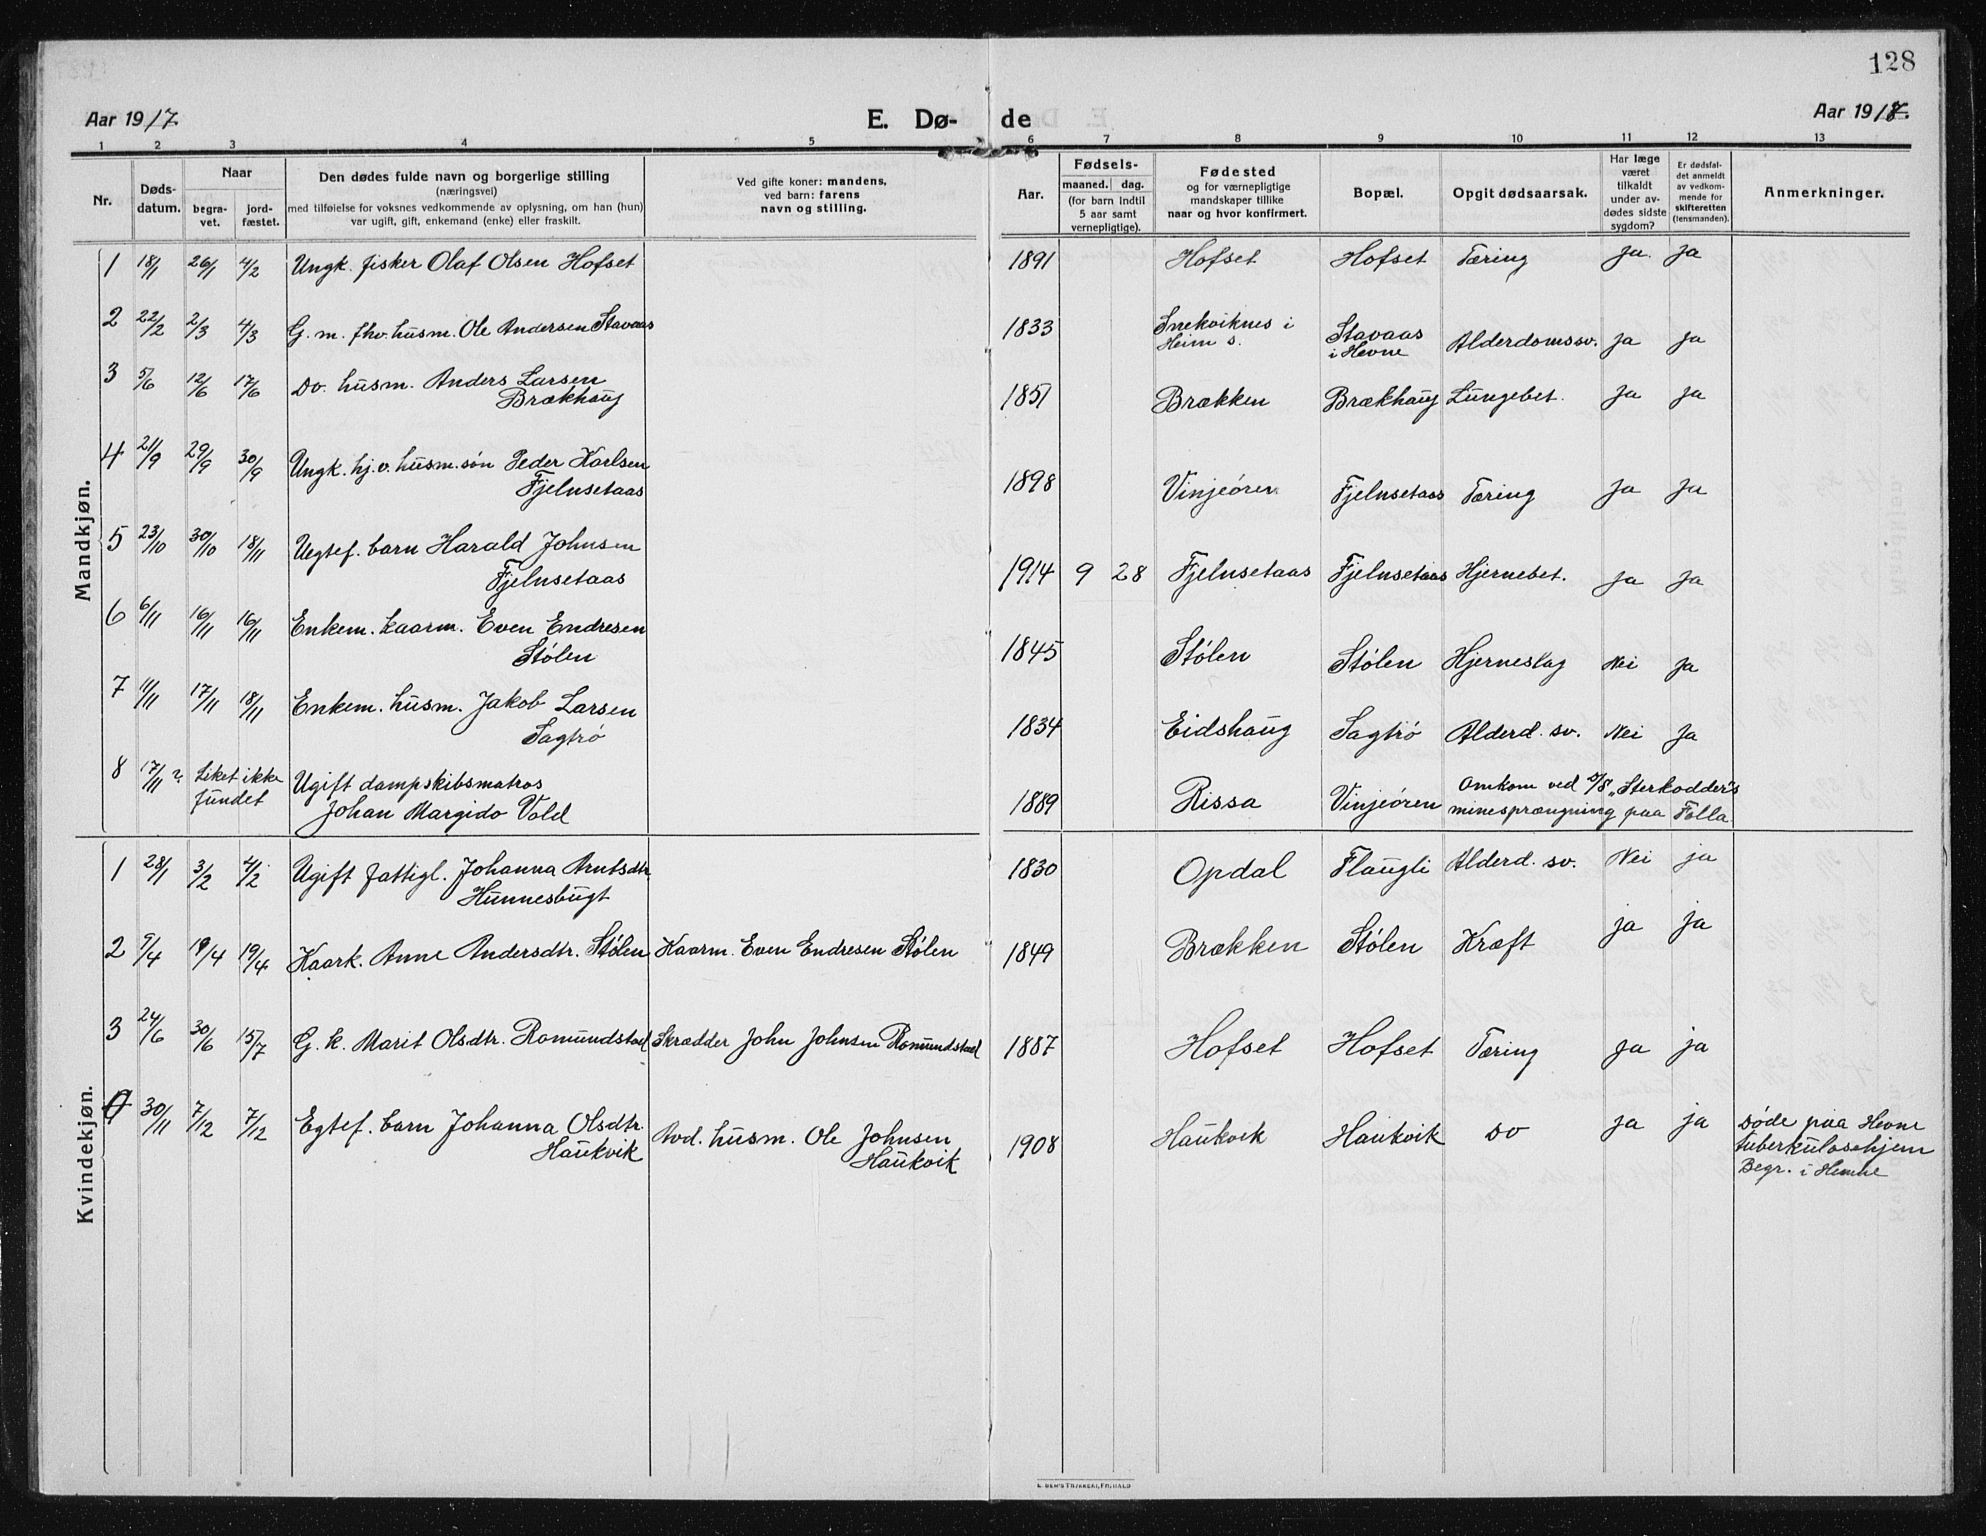 128
Aar 1917. E. Dø- de Aar 1917.
1 2 3 4 5 6 7 8 9 10 11 12 13
Nr. Døds-datum. Naar begra-vet. jord-fæstet. Den dødes fulde navn og borgerlige stilling (næringsvei) med tilføielse for voksnes vedkommende av oplysning, om han (hun) var ugift, gift, enkemand (enke) eller fraskilt. Ved gifte koner: mandens, ved barn: farens navn og stilling. Aar. Fødsels- maaned. dag. (for barn indtil 5 aar samt vernepligtige). Fødested og for værnepligtige mandskaper tillike naar og hvor konfirmert. Bopæl. Opgit dødsaarsak. Har læge været tilkaldt under av-dødes sidste sygdom? Er dødsfal-det anmeldt av vedkom-mende for skifteretten (lensmanden). Anmerkninger.
Mandkjøn.
1 18/1 26/1 4/2 Ungk. fisker Olaf Olsen Hofset 1891 Hofset Hofset Tæring Ja. Ja
2 22/2 2/3 4/3 G. m. fhv. husm. Ole Andersen Stavaas 1833 Snekviknes i Heim s. Stavaas i Hevne Alderdomssv. Ja Ja
3 5/6 12/6 17/6 Do. husm. Anders Larsen Brækhaug 1851 Brækken Brækhaug Lungebet. Ja Ja
4 21/9 29/9 30/9 Ungk. hj. v. husm. søn Peder Karlsen Fjelnsetaas 1898 Vinjeøren Fjelnsetaas Tæring Ja Ja
5 23/10 30/10 18/11 Uegtef. barn Harald Johnsen Fjelnsetaas 1914 9 28 Fjelnsetaas Fjelnsetaas Hjernebet. Ja Ja
6 6/11 16/11 16/11 Enkem. kaarm. Even Endresen Stølen 1845 Stølen Stølen Hjerneslag Nei Ja
7 11/11 17/11 18/11 Enkem. husm. Jakob Larsen Sagtrø 1834 Eidshaug Sagtrø Alderd. sv. Nei Ja
8 17/11 ? Liket ikke fundet Ugift dampskibsmatros Johan Margido Vold 1889 Rissa Vinjeøren Omkom ved D/S „Sterkodder"s minesprængning paa Folla
Kvindekjøn.
1 28/1 3/2 4/2 Ugift fattigl. Johanna Arntsdtr. Hunnesbugt 1830 Opdal Flaugli Alderd. sv. Nei ja
2 9/4 19/4 19/4 Kaark. Anne Andersdtr. Stølen Kaarm. Even Endresen Stølen 1849 Brækken Stølen Kræft ja ja
3 24/6 30/6 15/7 G. k. Marit Olsdtr. Romundstad Skrædder John Johnsen Romundstad 1887 Hofset Hofset Tæring ja ja
0 30/11 7/12 7/12 Egtef. barn Johanna Olsdtr. Haukvik Avd. husm. Ole Johnsen Haukvik 1908 Haukvik Haukvik Do ja ja Døde paa Hevne tuberkulosehjem Begr. i Hemne